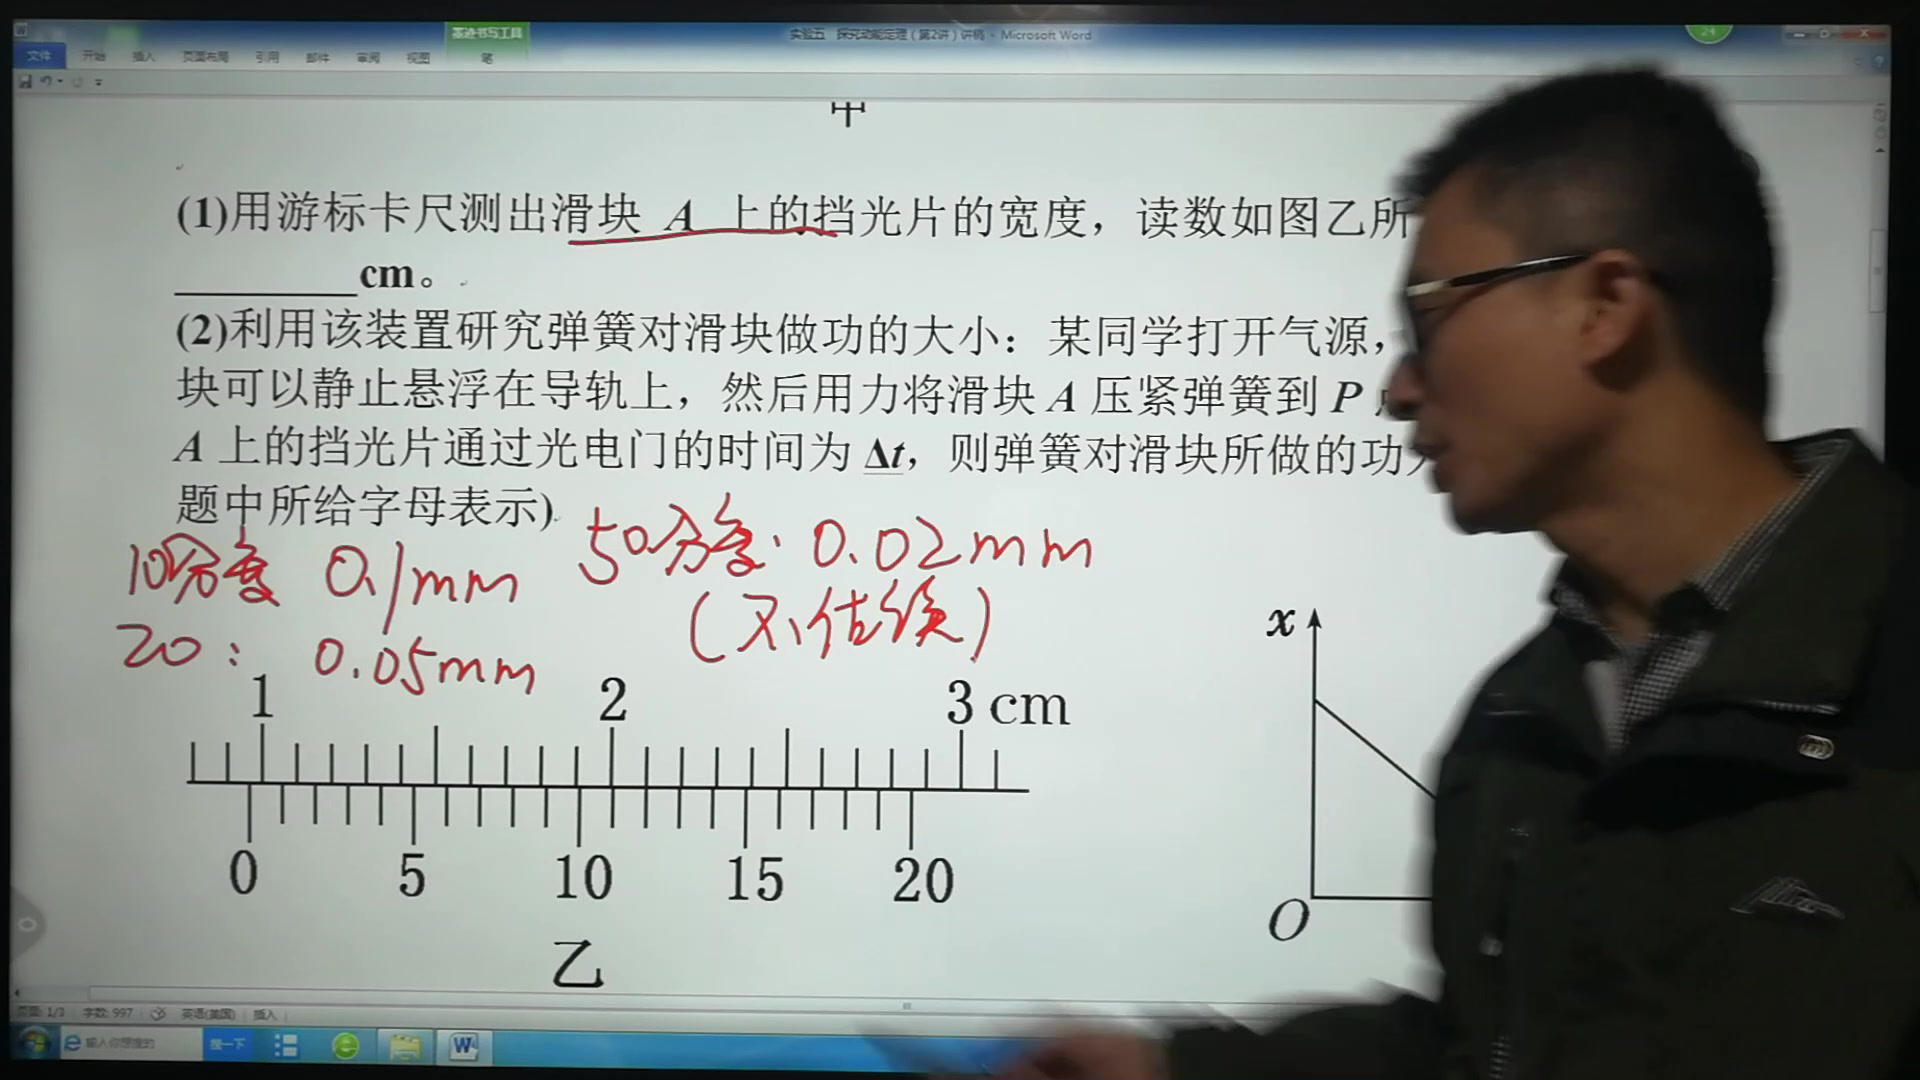 墨迹书写工具
实验五 探究动能定理(第2讲)讲稿 - Microsoft Word
24
文件 开始 插入 页面布局 引用 邮件 审阅 视图 笔
甲
(1)用游标卡尺测出滑块 A 上的挡光片的宽度，读数如图乙所
________cm。
(2)利用该装置研究弹簧对滑块做功的大小：某同学打开气源，
块可以静止悬浮在导轨上，然后用力将滑块 A 压紧弹簧到 P
A 上的挡光片通过光电门的时间为 Δt，则弹簧对滑块所做的功
题中所给字母表示)
10分度 0.1mm
50分度: 0.02mm
(不估读)
20: 0.05mm
1 2 3 cm
0 5 10 15 20
乙
x
O
页面: 1/3 字数: 997 英语(美国) 插入
输入你想搜的 搜一下